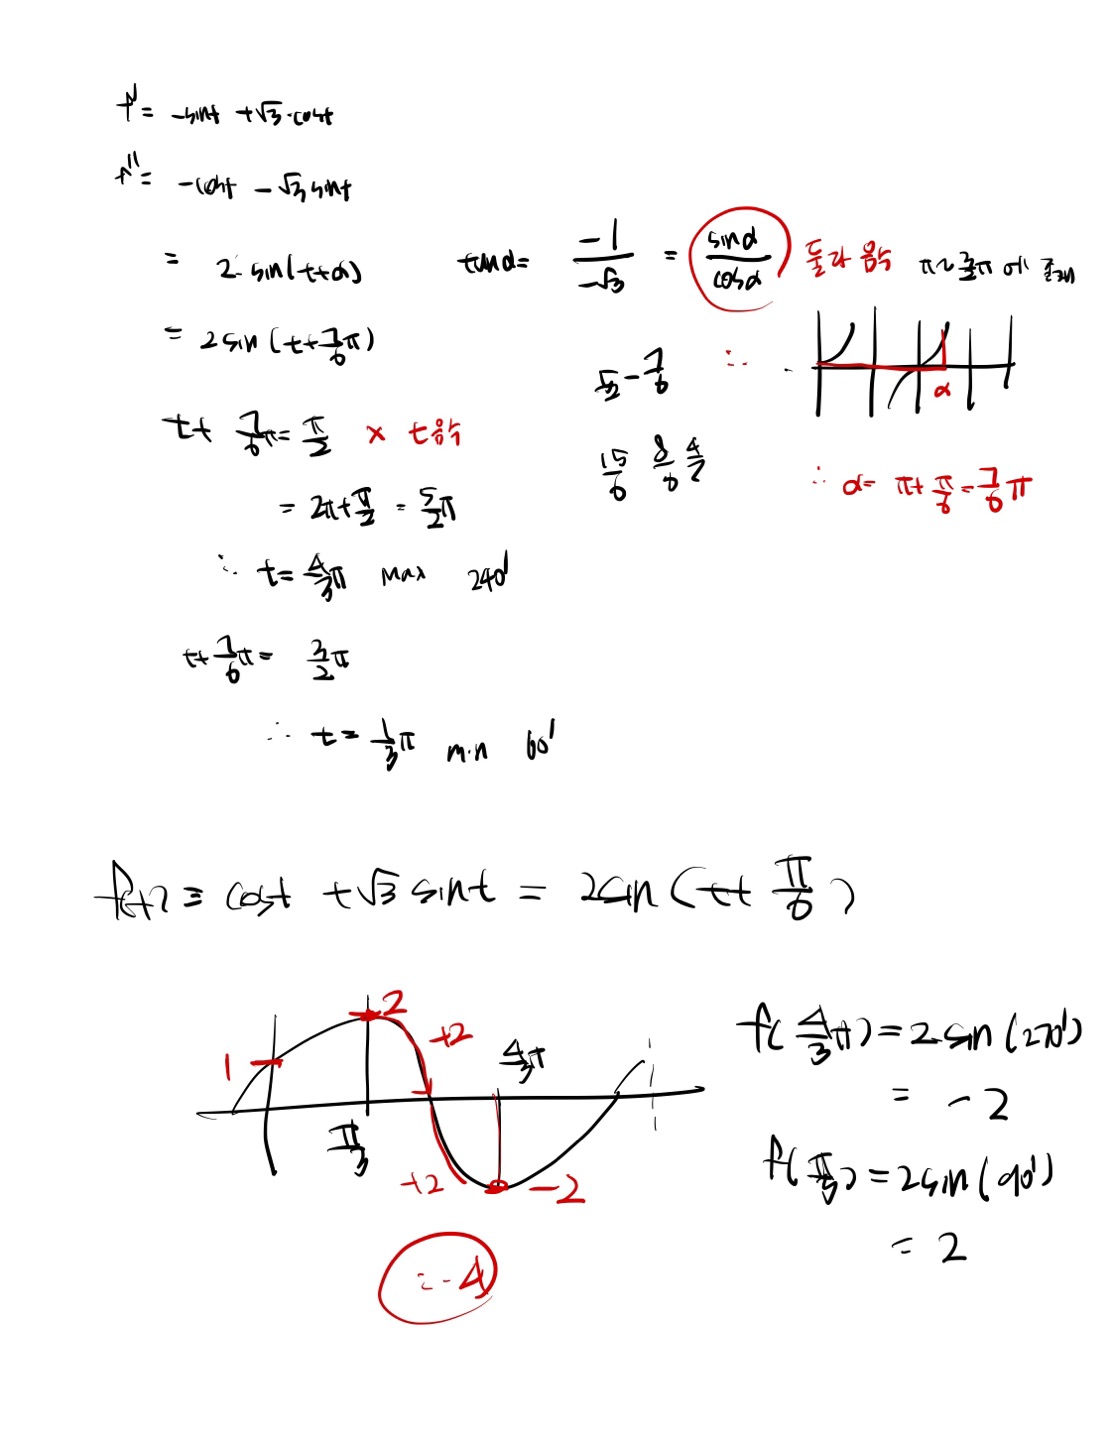 f' = -sint +√3·cost
f'' = -cost - √3 sint
= 2 sin(t+α)
tanα= -1/-√3 = sinα/cosα 둘다 음수 π~3/2π 에 존재
= 2sin (t+7/6π)
π/2 - 7/6
∴
α
t+ 7/6π= π/2 × t음수
15/6 8/6 4/2
∴ α= π+π/6=7/6π
= 2π+π/2 = 5/2π
∴ t= 4/3π max 240'
t+7/6π= 3/2π
∴ t= 1/3π min 60'
f(t) = cost +√3 sint = 2sin(t+ π/6)
2
1
+2
4/3π
π/3
+2
-2
f(4/3π)=2sin(270')
= -2
f(π/3)=2sin(90')
= 2
∴ 4